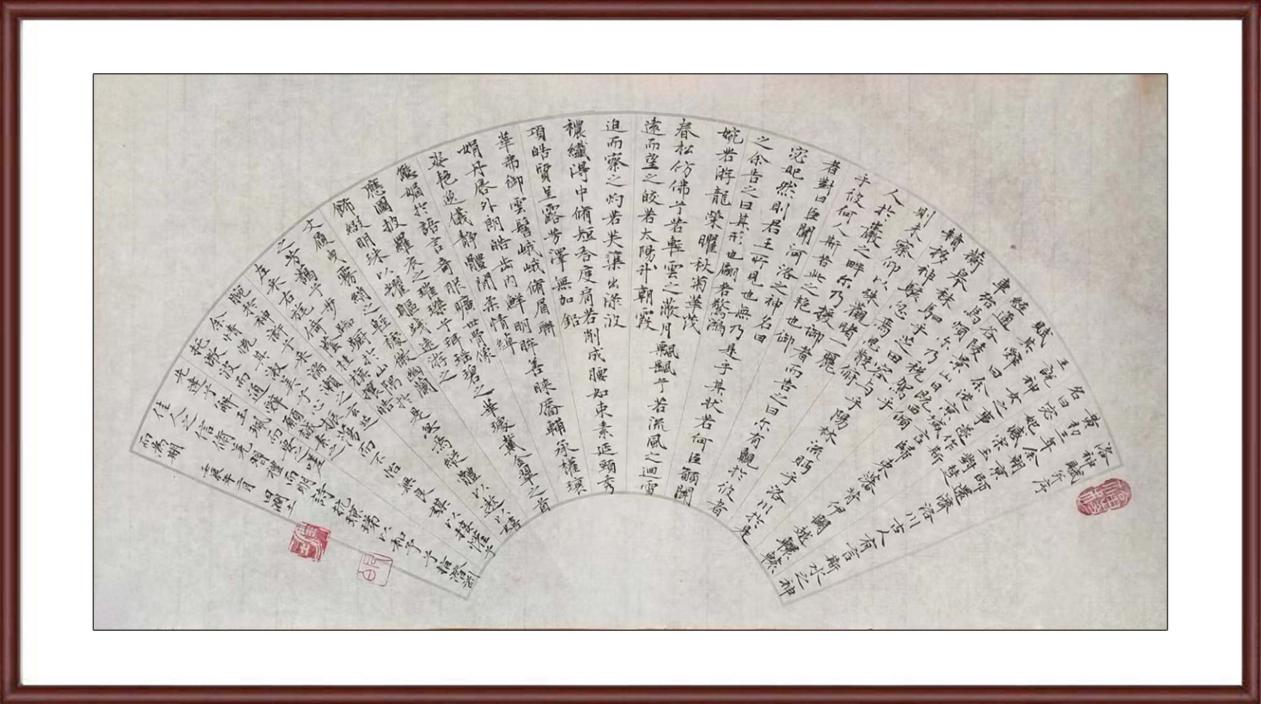 洛神賦并序
黃初三年余朝京師還濟洛川古人有言斯水之神
名曰宓妃感宋玉對楚
王說神女之事遂作斯
賦其辭曰余言歸東藩背伊闕越轘轅
經通谷陵景山日既西傾
車殆馬煩尔乃稅駕乎
蘅皋秣駟乎容與乎陽林流眄乎洛川於是
精移神駭忽焉思散俯
則未察仰以殊觀睹一麗
人於巖之畔尔乃援御者而告之曰尔有覿於彼者
乎彼何人斯若此之艷也御
者對曰臣聞河洛之神名曰
宓妃然則君王所見也無乃是乎其状若何臣願聞
之余告之曰其形也翩若驚鴻
婉若游龍榮曜秋菊華茂
春松仿佛兮若輕雲之蔽月飄飄兮若流風之迴雪
遠而望之皎若太陽升朝霞
迫而察之灼若芙蕖出淥波
穠纖得中脩短合度肩若削成腰如束素延頸秀
項皓質呈露芳澤無加鉛
華弗御雲髻峨峨脩眉聯
娟丹唇外朗皓齒內鮮明眸善睞靨輔承權瓌
姿艷逸儀靜體閑柔情綽
態媚於語言奇服曠世骨像
應圖披羅衣之璀璨兮珥瑤碧之華琚戴金翠之首
飾綴明珠以耀軀踐遠游之
文履曳霧綃之輕裾微幽蘭
之芳藹兮步踟躕於山隅於是忽焉縱體以遨以嬉
左倚采旄右蔭桂旗攘皓
腕於神滸兮采湍瀨之玄芝
余情悅其淑美兮心振蕩而不怡無良媒以接懽兮
托微波而通辭願誠素之
先達兮解玉珮而要之嗟
佳人之信脩羌習禮而明詩抗瓊珶以和予兮指潛淵
而為期